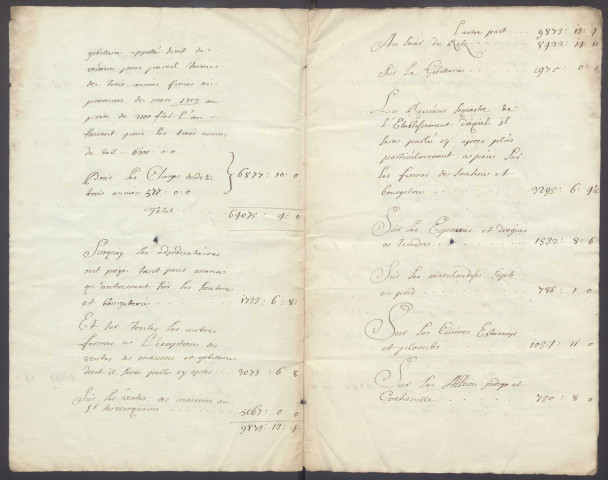 gibellerie appellé droit de
pour pareil terme
de trois années finies au
premier de mars 1703 au
prix de 2100 flor. l'an
faisant pour les trois années
du bail .. 6300 .. 0 .. 0
Pour les Charges desdites
trois années 577 : 0 : 0
6877 : 10 : 0
Total .... 64075 : 4 : 0
Surquoy les adjudicataires
ont payé tant pour avance
qu'autrement sur les
et bourgetrie .... 1733 : 6 : 8
Et sur toutes les autres
fermes a L'exception des
ventes de maisons et gibellerie
dont il sera parlé cy apres .. 3073 : 6 : 8
Sur les ventes de maisons au
.... 5067 : 0 : 0
9873 : 13 : 4
L'autre part .... 9873 : 13 : 4
Au haut du .... 8422 : 14 : 11
Sur la Gibellerie .... 1975 : 0 : 0
Le Receveur sequestre de
L'Etablissement duquel il
sera parlé cy apres plus
particulierement a payé sur
les fermes de et
bourgetrie .... 3295 : 6 :
Sur les Espiceries et drogues
a teindre .... 1532 : 8 : 6
Sur les marchandises sujets
au poid .... 786 : 1 : 0
Sur les Cuivres Estaings
et plombs .... 1034 : 11 : 0
Sur les et
Cochenille .... 750 : 8 : 0